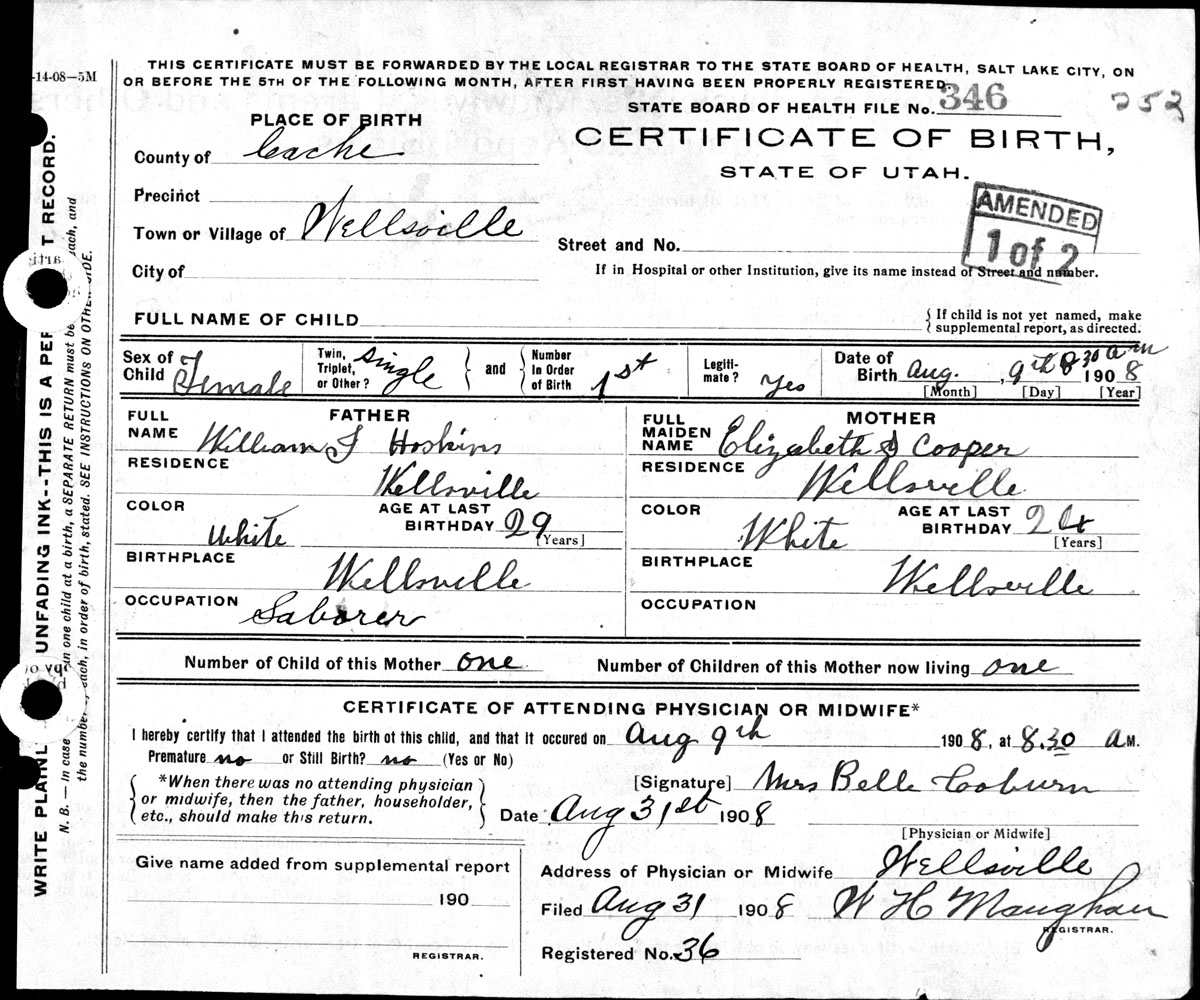 -14-08—5M
THIS CERTIFICATE MUST BE FORWARDED BY THE LOCAL REGISTRAR TO THE STATE BOARD OF HEALTH, SALT LAKE CITY, ON
OR BEFORE THE 5TH OF THE FOLLOWING MONTH, AFTER FIRST HAVING BEEN PROPERLY REGISTERED.
STATE BOARD OF HEALTH FILE No. 346
253
PLACE OF BIRTH
CERTIFICATE OF BIRTH,
STATE OF UTAH.
County of Cache
Precinct
AMENDED
1 of 2
Town or Village of Wellsville
Street and No.
City of
If in Hospital or other Institution, give its name instead of Street and number.
FULL NAME OF CHILD
{ If child is not yet named, make
supplemental report, as directed.
Sex of Child Female
Twin, Triplet, or Other? single
and
Number In Order of Birth 1st
Legiti-mate? Yes
Date of Birth Aug. , 9th 8 30 am 190 8
[Month] [Day] [Year]
FATHER
FULL NAME William J Hoskins
RESIDENCE
Wellsville
COLOR White
AGE AT LAST BIRTHDAY 29
[Years]
BIRTHPLACE
Wellsville
OCCUPATION
Laborer
MOTHER
FULL MAIDEN NAME Elizabeth S Cooper
RESIDENCE
Wellsville
COLOR White
AGE AT LAST BIRTHDAY 24
[Years]
BIRTHPLACE
Wellsville
OCCUPATION
Number of Child of this Mother one
Number of Children of this Mother now living one
CERTIFICATE OF ATTENDING PHYSICIAN OR MIDWIFE*
I hereby certify that I attended the birth of this child, and that it occured on Aug 9th 190 8, at 8.30 A M.
Premature no or Still Birth? no (Yes or No)
*When there was no attending physician
or midwife, then the father, householder,
etc., should make this return.
[Signature] Mrs Belle Coburn
Date Aug 31st 190 8
[Physician or Midwife]
Give name added from supplemental report
190
REGISTRAR.
Address of Physician or Midwife Wellsville
Filed Aug 31 190 8 W H Maughan
REGISTRAR.
Registered No. 36
WRITE PLAINL UNFADING INK--THIS IS A PER T RECORD.
N. B. — In case an one child at a birth, a SEPARATE RETURN must be each, and
the number each, in order of birth, stated. SEE INSTRUCTIONS ON OTHE SIDE.